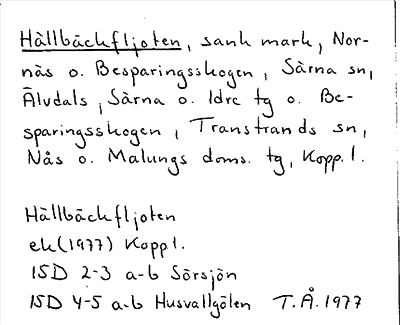 Hällbäckfljoten, sank mark, Nor-
näs o. Besparingsskogen, Särna sn,
Älvdals, Särna o. Idre tg o. Be-
sparingsskogen, Transtrands sn,
Nås o. Malungs doms. tg, Kopp. l.
Hällbäckfljoten
ek(1977) Koppl.
15D 2-3 a-b Sörsjön
15D 4-5 a-b Husvallgölen T.Å. 1977